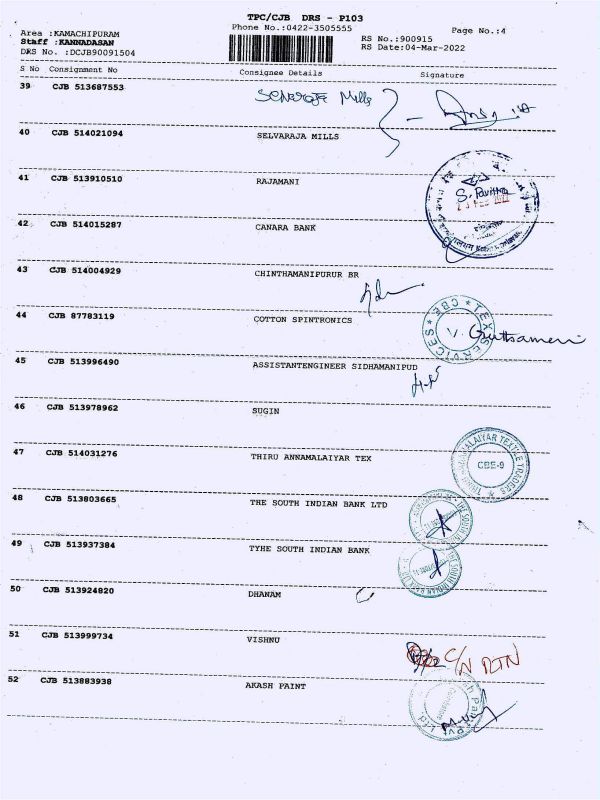 TPC/CJB DRS - P103
Phone No.:0422-3505555
Page No.:4
Area :KAMACHIPURAM
Staff :KANNADASAN
DRS No. :DCJB90091504
RS No.:900915
RS Date:04-Mar-2022
S No Consignment No Consignee Details Signature
39 CJB 513687553 Selvaraja Mills
40 CJB 514021094 SELVARAJA MILLS
41 CJB 513910510 RAJAMANI
S. Pavithra
42 CJB 514015287 CANARA BANK
43 CJB 514004929 CHINTHAMANIPURUR BR
44 CJB 87783119 COTTON SPINTRONICS
TEXSERVICES * CBE *
V.
45 CJB 513996490 ASSISTANTENGINEER SIDHAMANIPUD
46 CJB 513978962 SUGIN
47 CJB 514031276 THIRU ANNAMALAIYAR TEX
THIRU ANNAMALAIYAR TEXTILE TRADERS
CBE-9
48 CJB 513803665 THE SOUTH INDIAN BANK LTD
49 CJB 513937384 TYHE SOUTH INDIAN BANK
THE SOUTH INDIAN BANK LTD
50 CJB 513924820 DHANAM
51 CJB 513999734 VISHNU
C/N RTN
52 CJB 513883938 AKASH PAINT